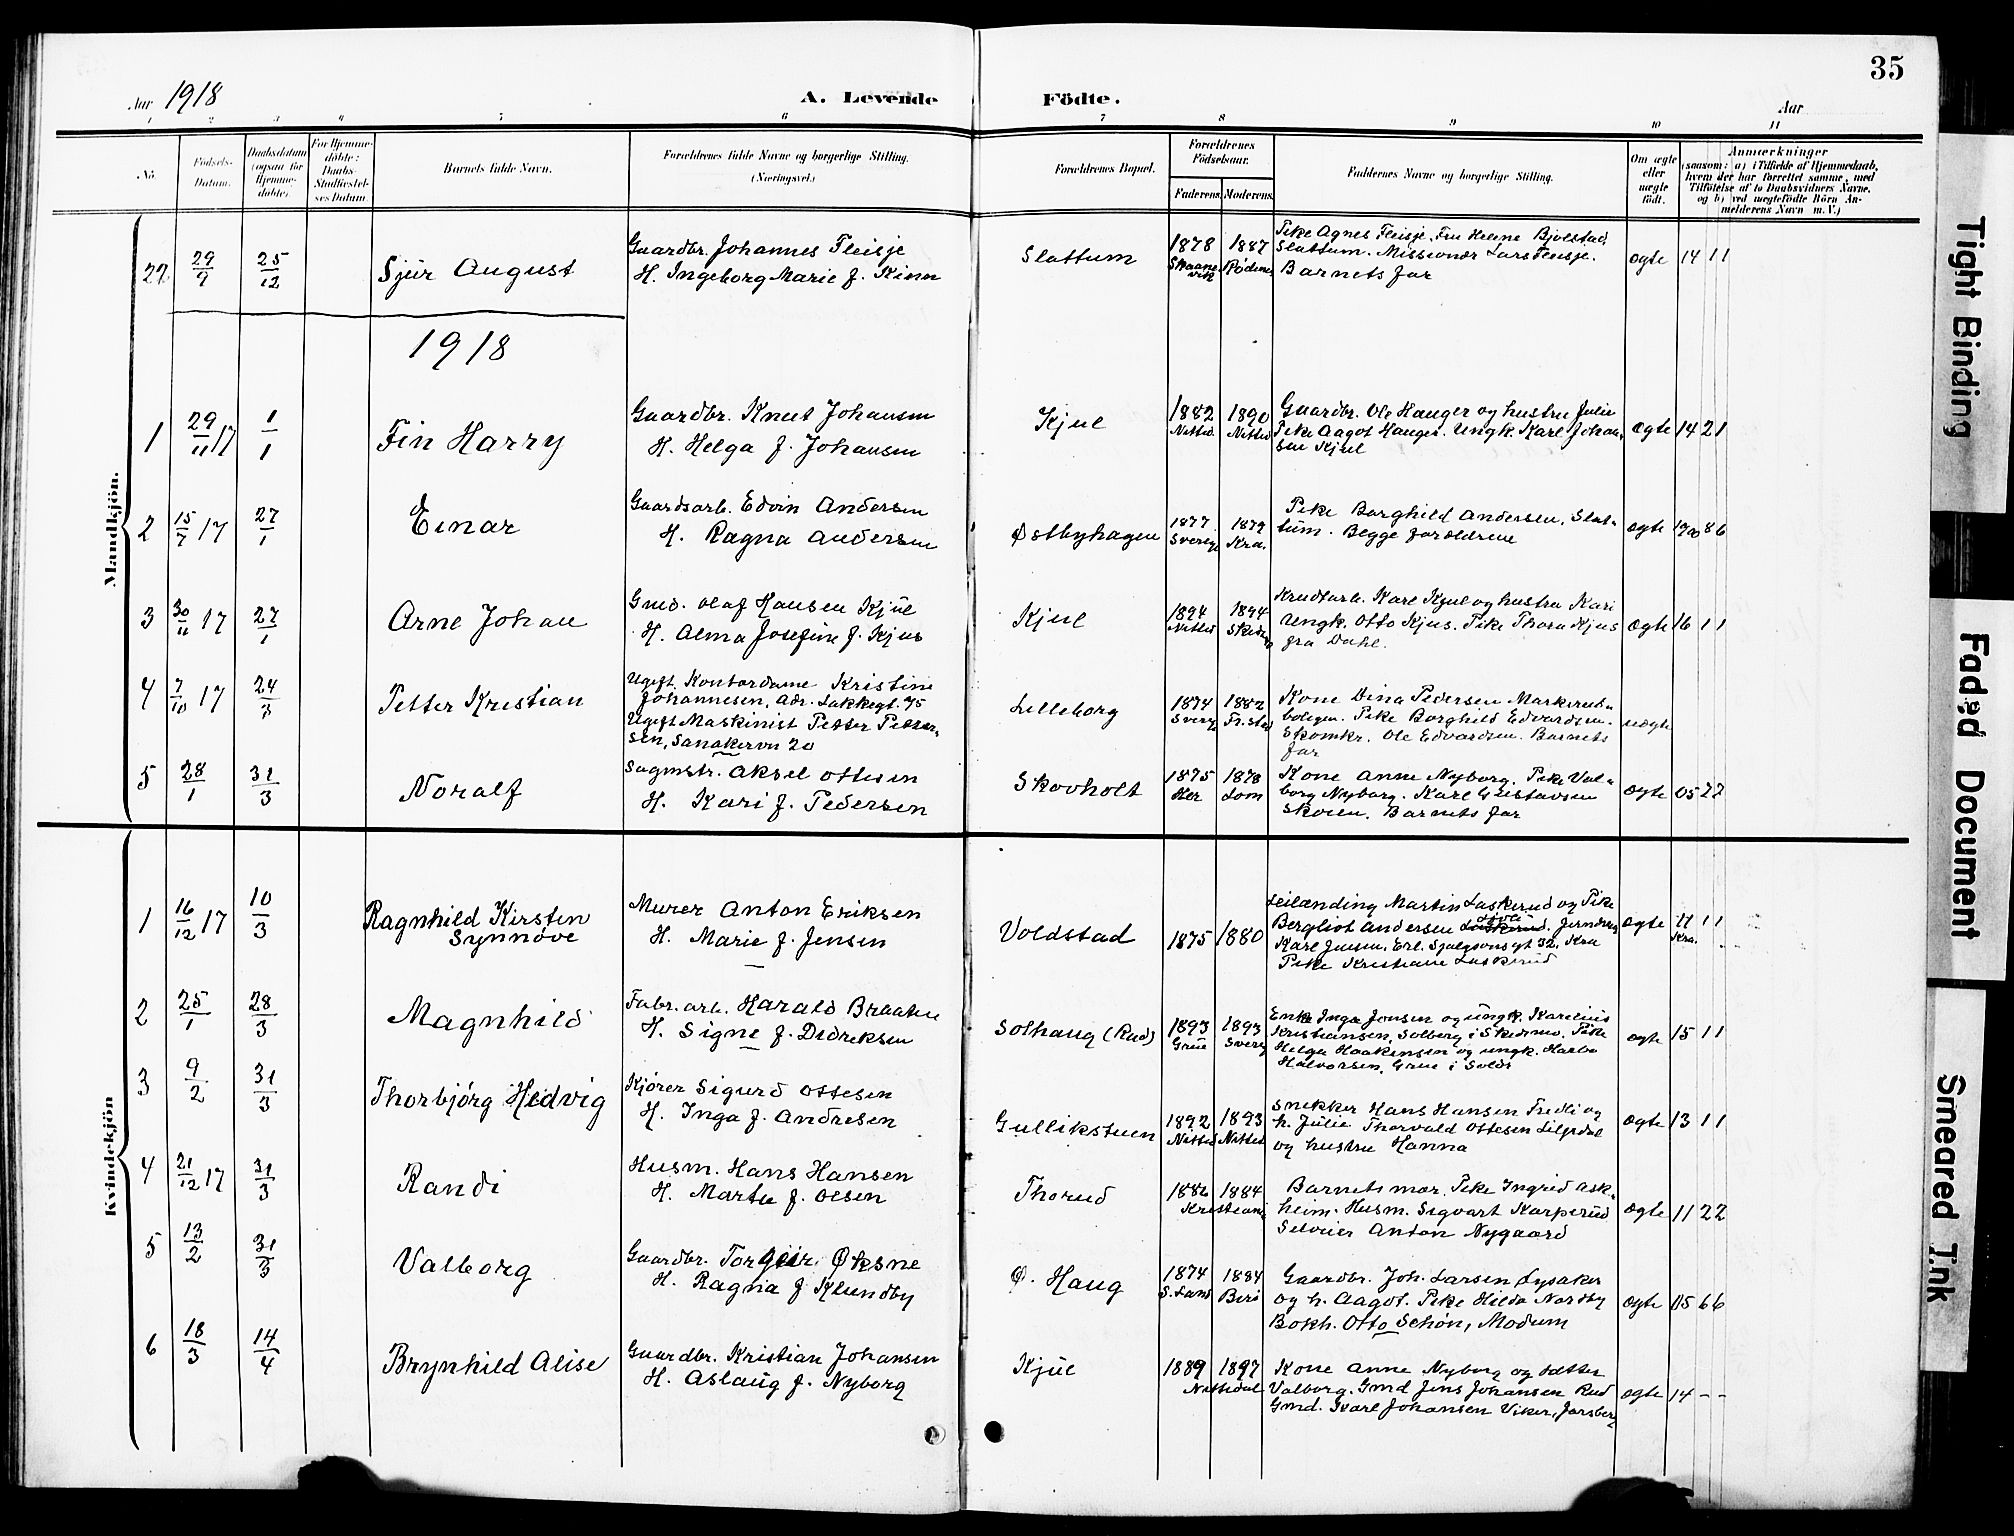 35
Aar 1918
A. Levende Födte.
Aar
1 2 3 4 5 6 7 8 9 10 11
No.
Födsels-
Datum.
Daabsdatum
(ogsaa for
Hjemme-
döbte).
For Hjemme-
döbte:
Daabs-
Stadfæstel-
ses Datum.
Barnets fulde Navn.
Forældrenes fulde Navne og borgerlige Stilling.
(Næringsvei.)
Forældrenes Bopæl.
Forældrenes
Födselsaar.
Faderens. Moderens.
Faddernes Navne og borgerlige Stilling.
Om ægte
eller
uægte
födt.
Anmærkninger
(saasom: a) i Tilfælde af Hjemmedaab,
hvem der har forrettet samme, med
Tilföielse af to Daabsvidners Navne,
og b) ved uægtefödte Börn An-
melderens Navn m. V.)
Mandkjön.
22 29/9 25/12 Sjur August
Gaardbr. Johannes Fleisje
H. Ingeborg Marie f. Kinn
Slattum
1878 1887
Skaanevik Rødenes
Pike Agnes Fleisje. Fru Helene Bjølstad,
Slattum. Missionær Lars Fleisje.
Barnets far
ægte 14 1 1
1918
1 29/11 17 1/1 Fin Harry
Gaardbr. Knut Johansen
H. Helga f. Johansen
Kjul
1882 1890
Nitted. Nitted
Gaardbr. Ole Hauger og hustru Julie
Pike Aagot Hauger. Ungk. Karl Johan-
sen Kjul
ægte 14 2 1
2 15/7 17 27/1 Einar
Gaardsarb. Edvin Andersen
H. Ragna Andersen
Østbyhagen
1877 1879
Sverge Kra.
Pike Borghild Andersen, Slat-
tum. Begge foreldrene
ægte 1900 8 6
3 30/11 17 27/1 Arne Johan
Gmd. Olaf Hansen Kjul
H. Alma Josefine f. Kjus
Kjul
1894 1894
Nitted Skedsm
Krudtarb. Karl Kjul og hustru Kari
Ungk. Otto Kjus. Pike Thora Kjus
fra Dahl.
ægte 16 1 1
4 7/10 17 24/3 Petter Kristian
Ugift Kontordame Kristine
Johannesen, Adr. Lakkegt. 75
Ugift Maskinist Petter Petter-
sen, Sanakervn 20
Lilleborg
1874 1882
Sverg Fr.stad
Kone Dina Pedersen Markerud-
bolegen. Pike Borghild Edvardsen.
Skomkr. Ole Edvardsen. Barnets
far
uægte
5 28/1 31/3 Noralf
Sagmstr. Aksel Ottesen
H. Kari f. Pedersen
Skovholt
1875 1878
Her Lom
Kone Anne Nyborg. Pike Val-
borg Nyborg. Karl Gustavsen
Skoien. Barnets far
ægte 05 2 2
Kvindekjön
1 16/12 17 10/3 Ragnhild Kirsten
Synnøve
Murer Anton Eriksen
H. Marie f. Jensen
Voldstad
1875 1880
Leilænding Martin Laskerud og Pike
Bergliot Andersen Laskerud. Jerndrey
Karl Jensen, Erl. Sjølgsonsgt 32. Kra
Pike Kristiane Laskerud
ægte 11 1 1
Kra.
2 25/1 28/3 Magnhild
Fabr. arb. Harald Braaten
H. Signe f. Didreksen
Solhaug (Rud)
1893 1893
Grue Sverg
Enke Inga Jensen og ungk. Karelius
Kristiansen, Solberg i Skedsmo. Pike
Helga Haakensen og ungk. Harbo
Halvorsen, Grue i Solør
ægte 15 1 1
3 9/2 31/3 Thorbjørg Hedvig
Kjører Sigurd Ottesen
H. Inga f. Andresen
Gullikstuen
1892 1893
Nitted Nitted
Snekker Hans Hansen Fredli og
h. Julie Thorvald Ottesen Liljedal
og hustru Hanna
ægte 13 1 1
4 21/12 17 31/3 Randi
Husm. Hans Hansen
H. Marte f. Olsen
Thorud
1882 1884
Kristiania
Barnets mor. Pike Ingrid Ask-
heim. Husm. Sigvart Karperud
Selveier Anton Nygaard
ægte 11 2 2
5 13/2 31/3 Valborg
Gaardbr. Torgeir Øksne
H. Ragna f. Klundby
Ø. Haug
1874 1884
S. Land Biri
Gaardbr. Joh. Larsen Lysaker
og h. Aagot. Pike Hilda Nordby
Bokh. Otto Schøn, Modum
ægte 05 6 6
6 18/3 14/4 Brynhild Alise
Gaardbr. Kristian Johansen
H. Aslaug f. Nyborg
Kjul
1889 1897
Nittedal
Kone Anne Nyborg og datter
Valborg. Gmd Jens Johansen Rud
Gmd. Karl Johansen Viker, Jarsberg
ægte 14 - -
Tight Binding
Faded Document
Smeared Ink